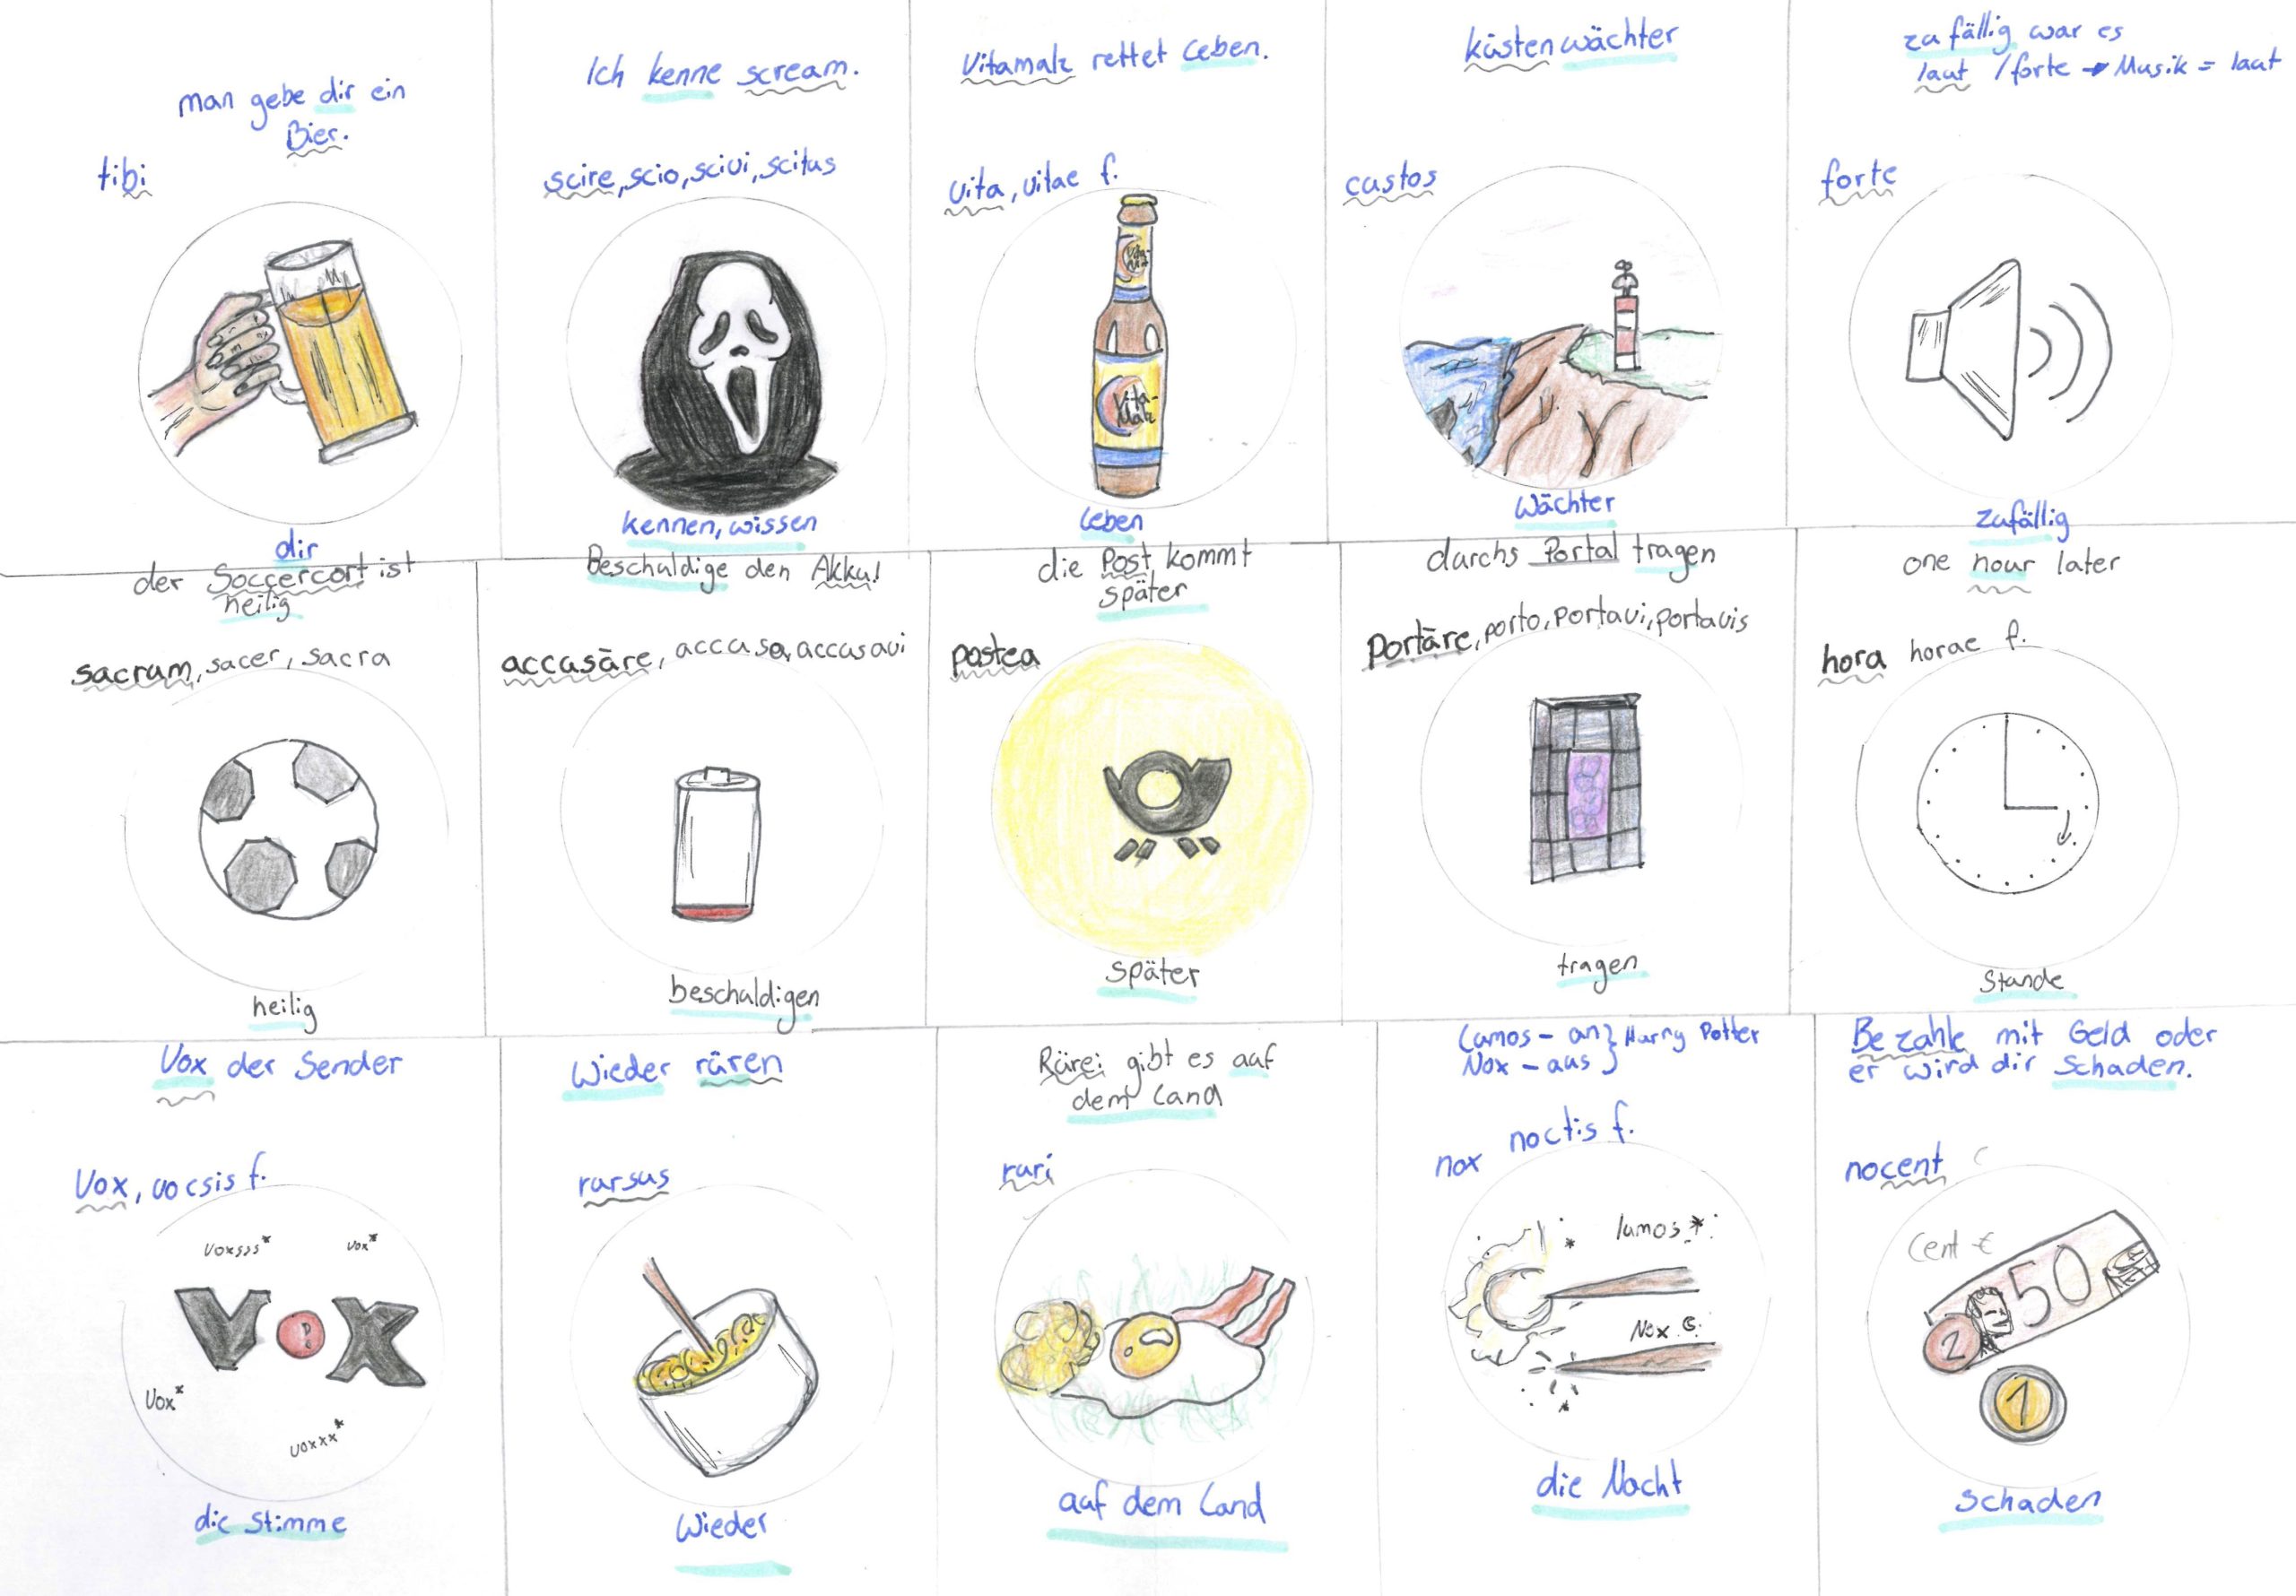 man gebe dir ein
Bier.
tibi
dir
Ich kenne scream.
scire, scio, scivi, scitus
kennen, wissen
Vitamalz rettet Leben.
vita, vitae f.
Vita-
Malz
Leben
küstenwächter
custos
Wächter
zufällig war es
laut / forte → Musik = laut
forte
zufällig
der Soccercort ist
heilig
sacrum, sacer, sacra
heilig
Beschuldige den Akku!
accusāre, accuso, accusavi
beschuldigen
die Post kommt
später
postea
später
durchs Portal tragen
portāre, porto, portavi, portavis
tragen
one hour later
hora horae f.
Stunde
Vox der Sender
Vox, vocsis f.
voxsss*
vox*
VOX
Vox*
voxxx*
die Stimme
Wieder rüren
rursus
Wieder
Rürei gibt es auf
dem Land
ruri
auf dem Land
Lumos - an } Harry Potter
Nox - aus
nox noctis f.
lumos
Nox
die Nacht
Bezahle mit Geld oder
er wird dir Schaden.
nocent
Cent €
50
2
1
Schaden